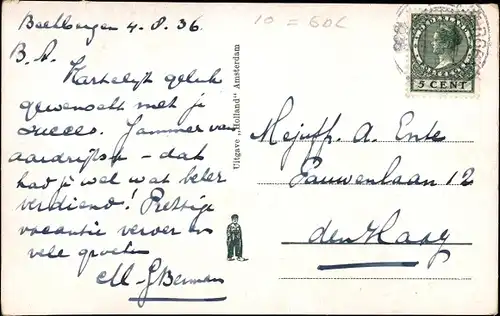 Beekbergen 4.8.36.
10 = 60c
B. A.
Hartelijk geluk
gewenscht met je
succes. Jammer van
aardrijksk - dat
had je wel wat beter
verdiend! Prettige
vacantie verder en
vele groeten
M. G. Berman
Uitgave „Holland" Amsterdam
NEDERLAND
5 CENT
Mejuffr. A. Ente
Pauwenlaan 12
den Haag